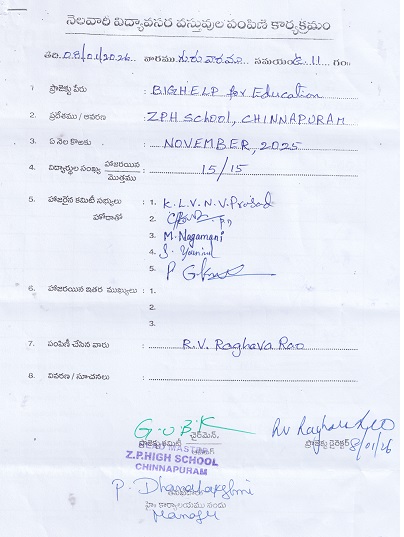 నెలవారీ విద్యావసర వస్తువుల పంపిణీ కార్యక్రమం
తేది. 08/01/2026.. వారము గురువారము.. సమయం 11.. గం॥
1 ప్రాజెక్టు పేరు : BIGHELP for Education
2. ప్రదేశము / ఆవరణ : ZPH School, CHINNAPURAM
3. ఏ నెల కొఱకు : NOVEMBER, 2025
4. విద్యార్థుల సంఖ్య హాజరయిన / మొత్తము : 15/15
5. హాజరైన కమిటీ సభ్యులు : 1. K.L.V.N.V. Prasad
హోదాతో 2.
3. M. Nagamani
4.
5. P
6. హాజరయిన ఇతర ముఖ్యులు : 1.
2.
3.
7. పంపిణీ చేసిన వారు : R.V. Raghava Rao
8. వివరణ / సూచనలు :
G.U.B.K
ప్రాజెక్టు కమిటీ ఛైర్మెన్.
RV Raghava Rao
ప్రాజెక్టు డైరెక్టర్ 8/01/26
Z.P.HIGH SCHOOL
CHINNAPURAM
P. Dhanalakshmi
హై కార్యాలయము నందు
Manager